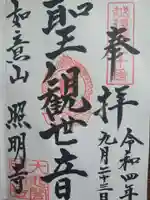 奉拝
令和四年
九月二十三日
聖観世音
如意山 照明寺